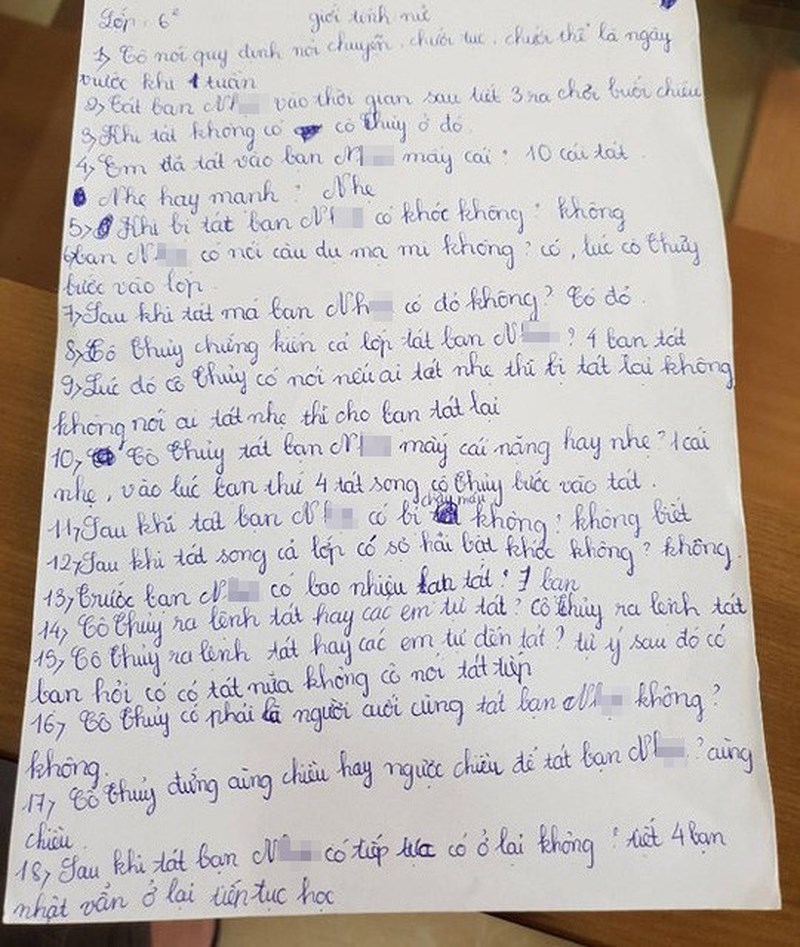 Lớp: 6² giới tính nữ
1, Cô nói quy định nói chuyện, chửi tục, chửi thề là ngày
trước khi 1 tuần
2, Tát bạn N vào thời gian sau tiết 3 ra chơi buổi chiều
3, Khi tát không có cô Thủy ở đó.
4, Em đã tát vào bạn N mấy cái? 10 cái tát.
Nhẹ hay mạnh? Nhẹ
5, Khi bị tát bạn N có khóc không? không
6, bạn N có nói câu dụ mạ mi không? có, lúc cô Thủy
bước vào lớp.
7, Sau khi tát má bạn Nh có đỏ không? Có đỏ.
8, Cô Thủy chứng kiến cả lớp tát bạn N? 4 bạn tát
9, Lúc đó cô Thủy có nói nếu ai tát nhẹ thì bị tát lại không
không nói ai tát nhẹ thì cho bạn tát lại
10, Cô Thủy tát bạn N mấy cái nặng hay nhẹ? 1 cái
nhẹ, vào lúc bạn thứ 4 tát song cô Thủy bước vào tát.
11, Sau khi tát bạn N có bị chảy máu không? không biết
12, Sau khi tát song cả lớp có sợ hãi bật khóc không? không.
13, Trước bạn N có bao nhiêu bạn tát? 7 bạn
14, Cô Thủy ra lệnh tát hay các em tự tát? Cô Thủy ra lệnh tát
15, Cô Thủy ra lệnh tát hay các em tự đến tát? tự ý sau đó có
bạn hỏi cô có tát nữa không cô nói tát tiếp
16, Cô Thủy có phải là người cuối cùng tát bạn N không?
không.
17, Cô Thủy đứng cùng chiều hay ngược chiều để tát bạn N? cùng
chiều.
18, Sau khi tát bạn N có tiếp tục có ở lại không? tiết 4 bạn
nhật vẫn ở lại tiếp tục học